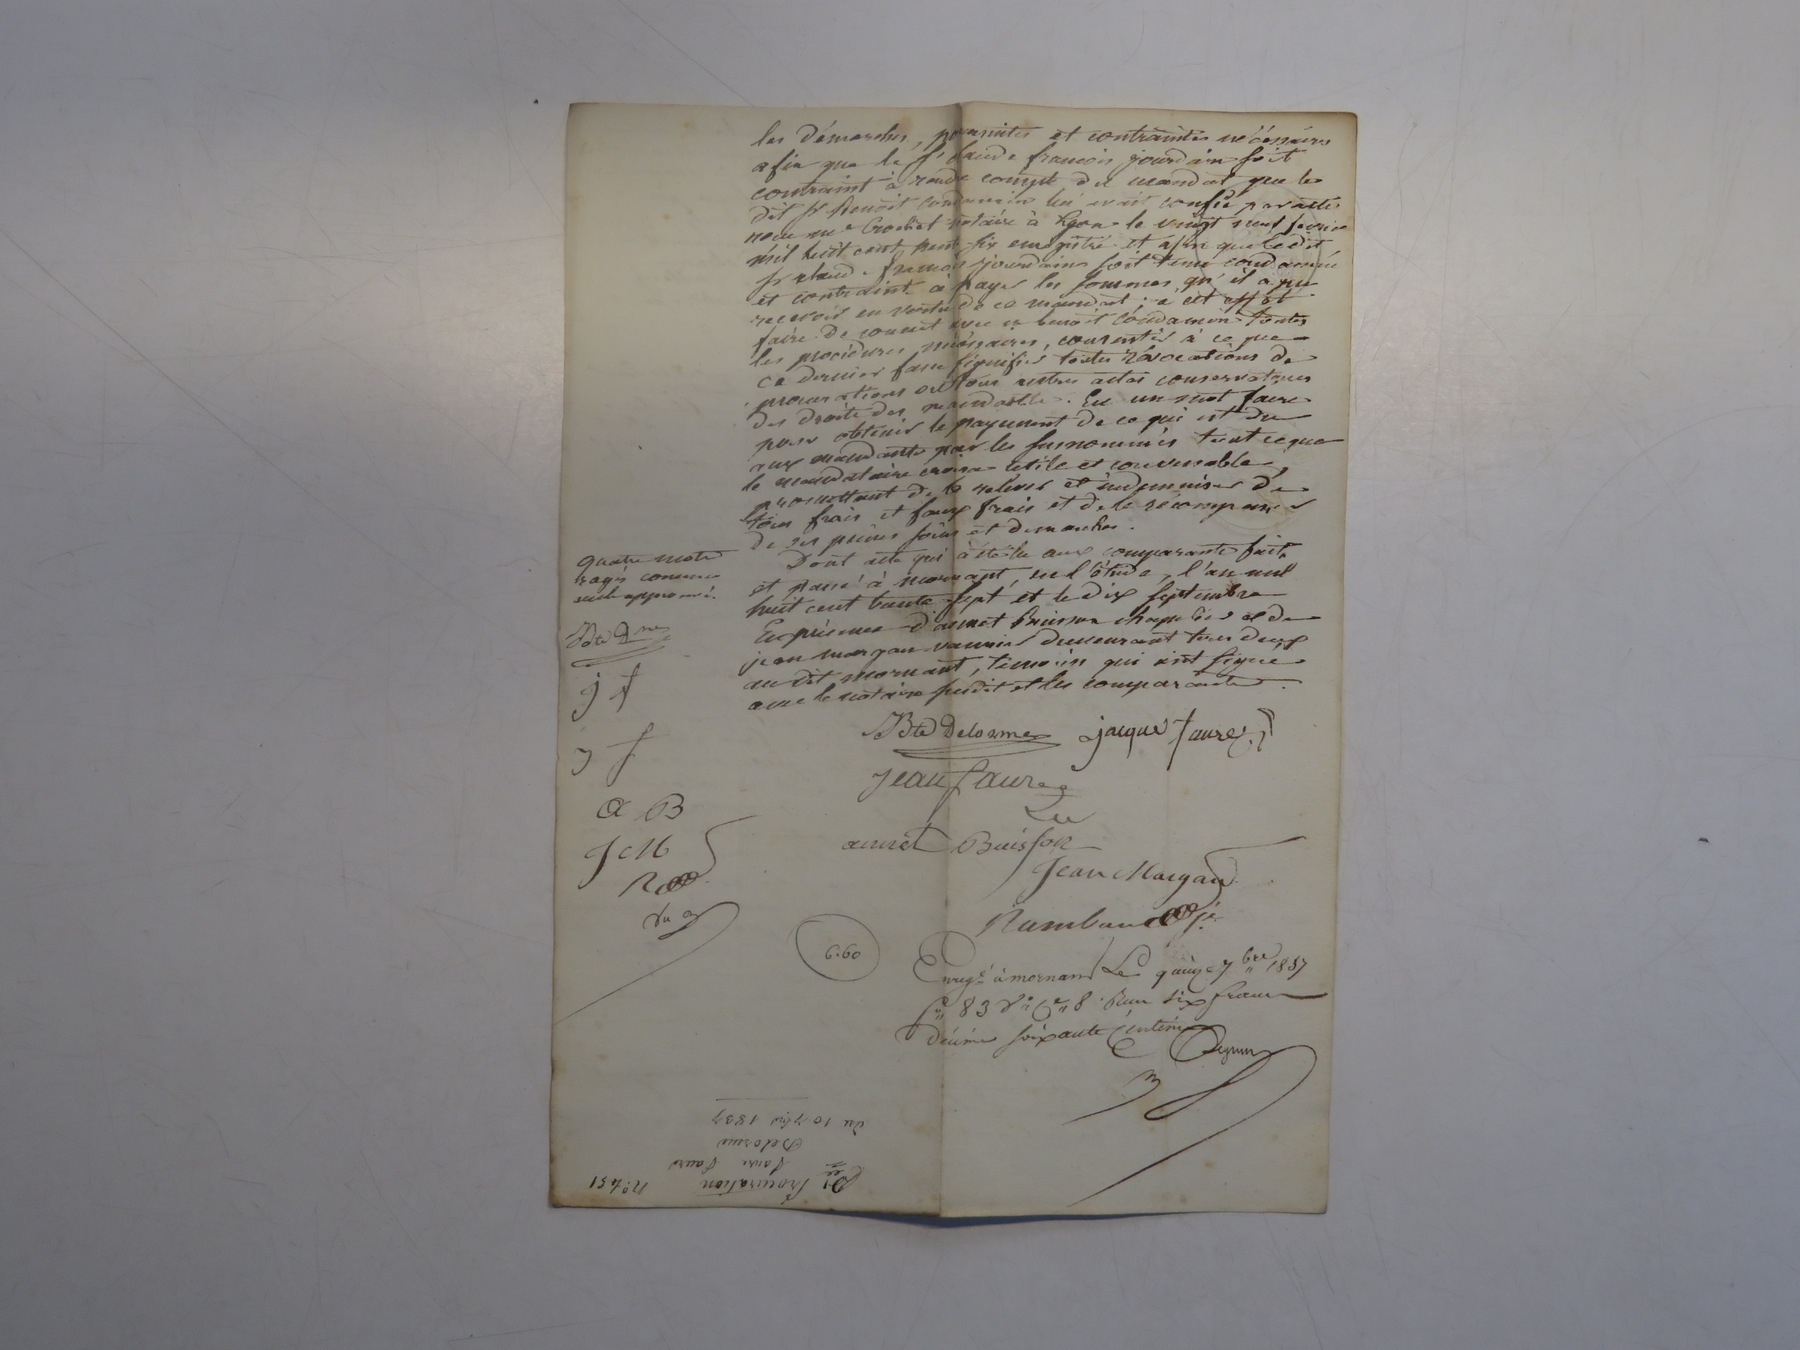 les démarches, poursuites et contraintes nécéssaires
afin que le Sr Claude françois jourdain soit
contraint à rendre compte du mandat que le
dit Sr Benoit Condamin lui avait confié par acte
reçu me Crochet notaire à Lyon le vingt neuf février
mil huit cent trente six enregistré et afin que le dit
Sr claude françois jourdain soit tenu condamné
et contraint à payer les sommes qu'il a pu
recevoir en vertu de ce mandat; a cet effet
faire de concert avec le benoit Condamin toutes
les procédures nécessaires, consentir à ce que
ce dernier fasse signifier toutes révocations de
procurations et tous autres actes conservatoires
des droits des mandants. En un mot faire
pour obtenir le payement de ce qui est du
aux mandants par les susnommés tout ce que
le mandataire croira utile et convenable,
promettant de le relever et indemniser de
tous frais et faux frais et de le récompenser
de ses peines soins et démarches.
Dont acte qui à été lu aux comparants fait
et passé à mornant, en l'étude, l'an mil
huit cent trente sept et le dix septembre
En présence d'aimet Buisson chapelier et de
jean margan vannier demeurant tous deux
au dit mornant, témoin qui ont signé
avec le notaire susdit et les comparants.
quatre mots
rayés comme
nuls approuvé.
Bte Dme
j f
j f
a B
J M
R
Bte Delorme jacque faure
jean faure
aimet Buisson
Jean Margan
Rambaud
6.60
Enregé à mornant Le quinze 7bre 1837
fo 83 Vo Ce 8 Reçu six francs
décime soixante centimes
No 451
Procuration
faure
Delorme
du 10 7bre 1837